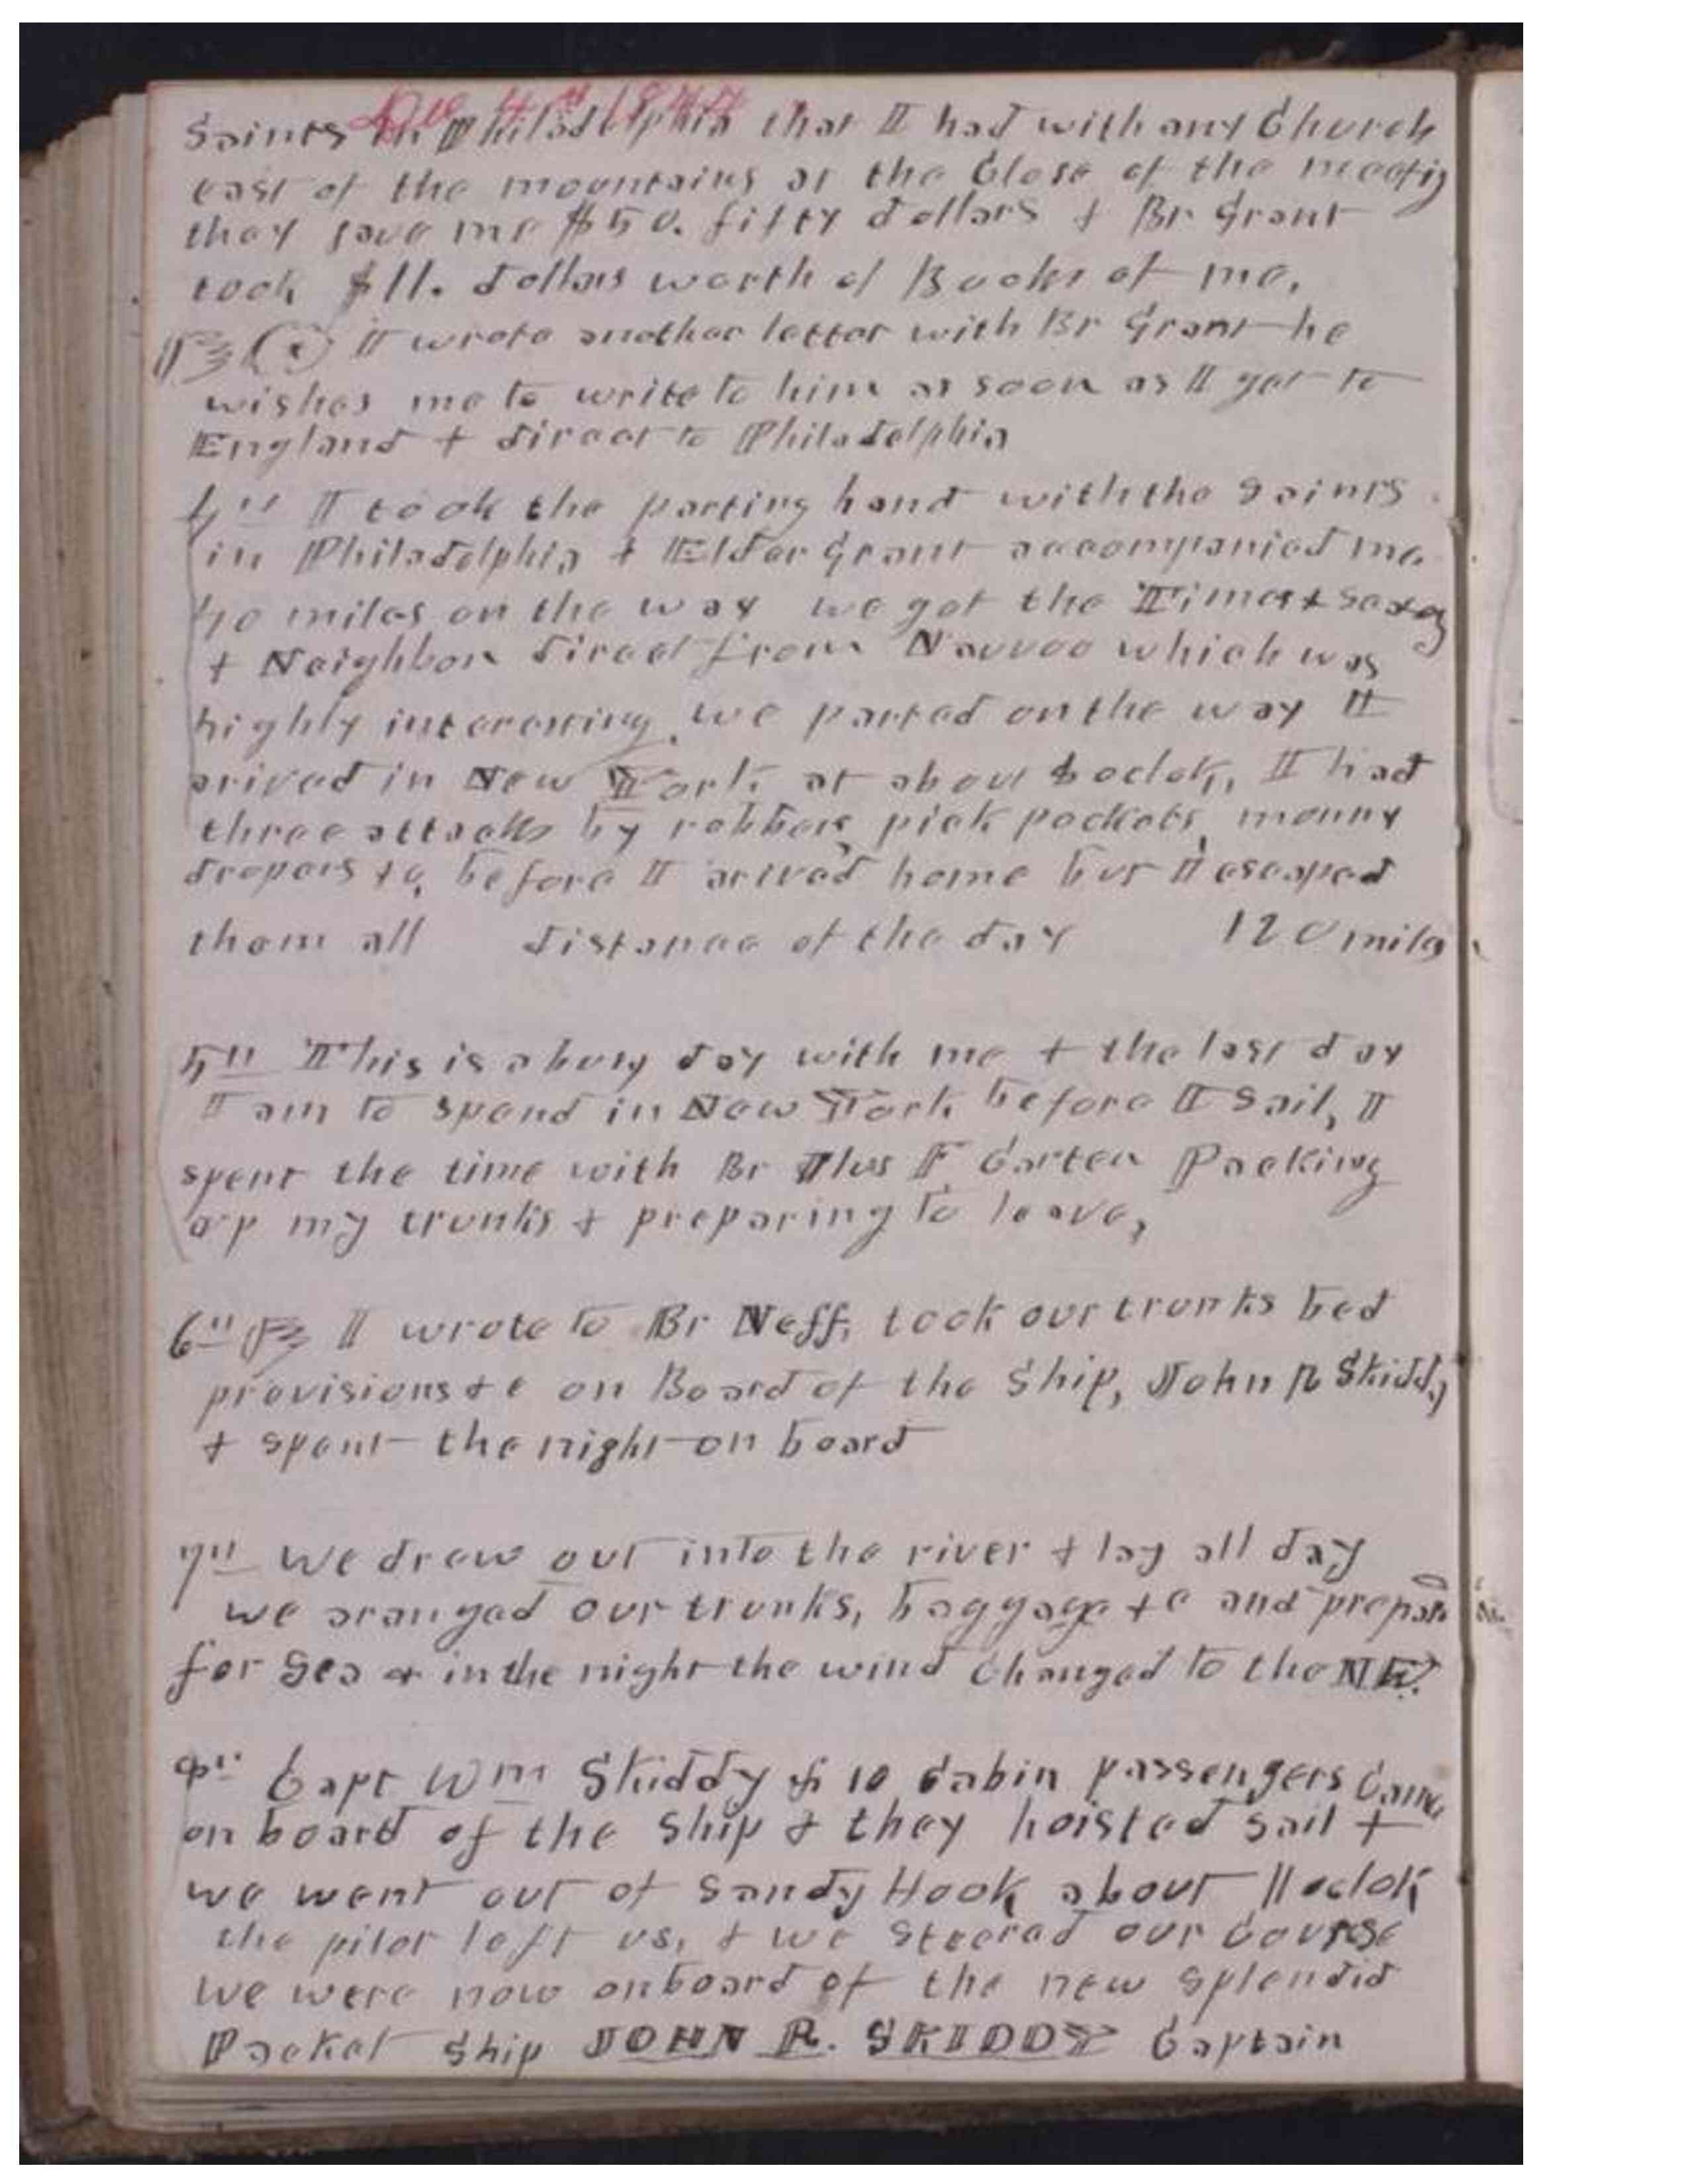 Dec 4th 1844
Saints in Philadelphia that I had with any Church
east of the mountains at the Close of the meetig
they gave me $50. fifty dollars & Br Grant
took $11. dollars worth of Books of me,
I wrote another letter with Br Grant he
wishes me to write to him as soon as I get to
England & direct to Philadelphia
4" I took the parting hand with the Saints
in Philadelphia & Elder Grant accompanied me
40 miles on the way we got the Times & Seasg
& Neighbor direct from Nauvoo which was
highly interesting, we parted on the way I
arived in New York at about oclok, I had
three attacks by robbers, pick pockets, monny
dropers &c, before I arived home but I escaped
them all distance of the day 120 mils
5" This is a busy day with me & the last day
I am to spend in New York before I Sail, I
spent the time with Br F Carter Packing
up my trunks & preparing to leave,
6" I wrote to Br Neff, took our trunks bed
provisions &c on Board of the Ship, John R Skiddy
& spent the night on board
7" we drew out into the river & lay all day
we aranged our trunks, baggage &c and prepared
for Sea & in the night the wind Changed to the NW.
8" Capt Wm Skiddy & 10 Cabin passengers Came
on board of the Ship & they hoisted Sail &
we went out of Sandy Hook about 11 oclok
the pilot left us, & we Steered our Course
we were now onboard of the new splendid
Packet Ship JOHN R. SKIDDY Captain